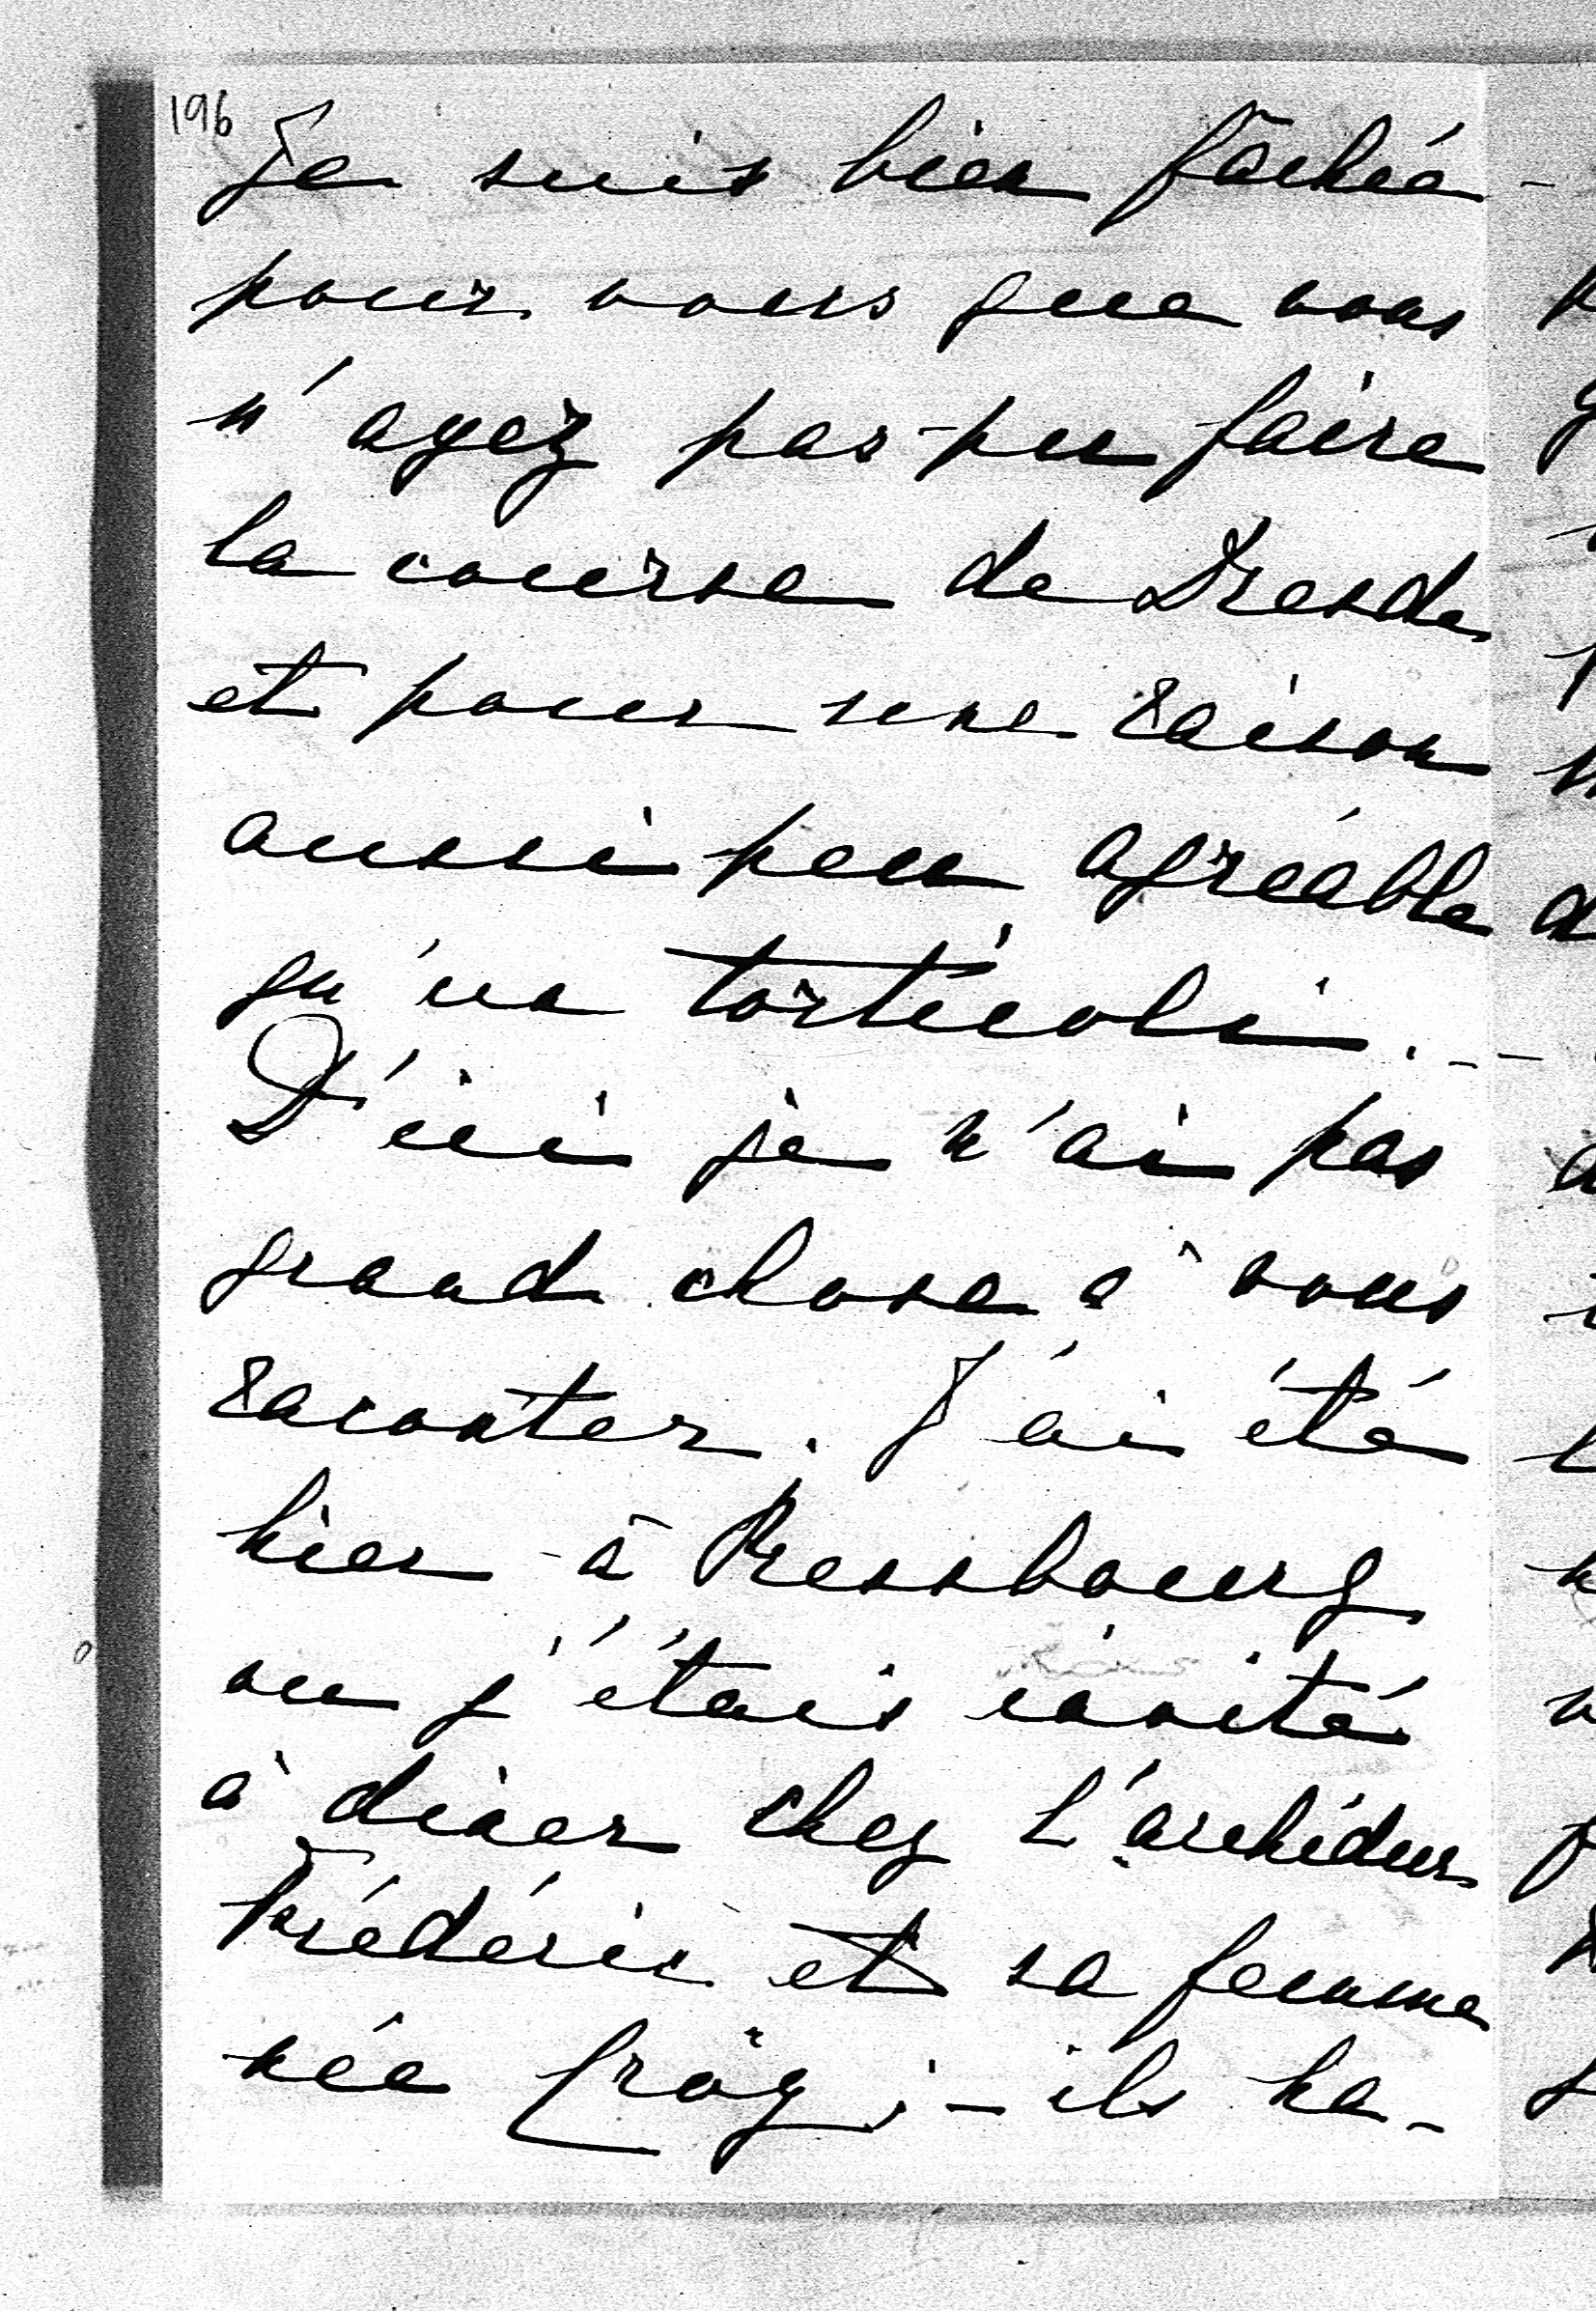 196
Je suis bien fâché
pour vous que vous
n'ayez pas pu faire
la course de Dresde
et pour une raison
aussi peu agréable
qu'un torticoli. - -
D'ici je n'ai pas
grand chose à vous
raconter. J'ai été
hier à Pressbourg
ou j'étais invité
à diner chez L'archiduc
Frédéric et sa femme
née Croÿ ; - ils ha-